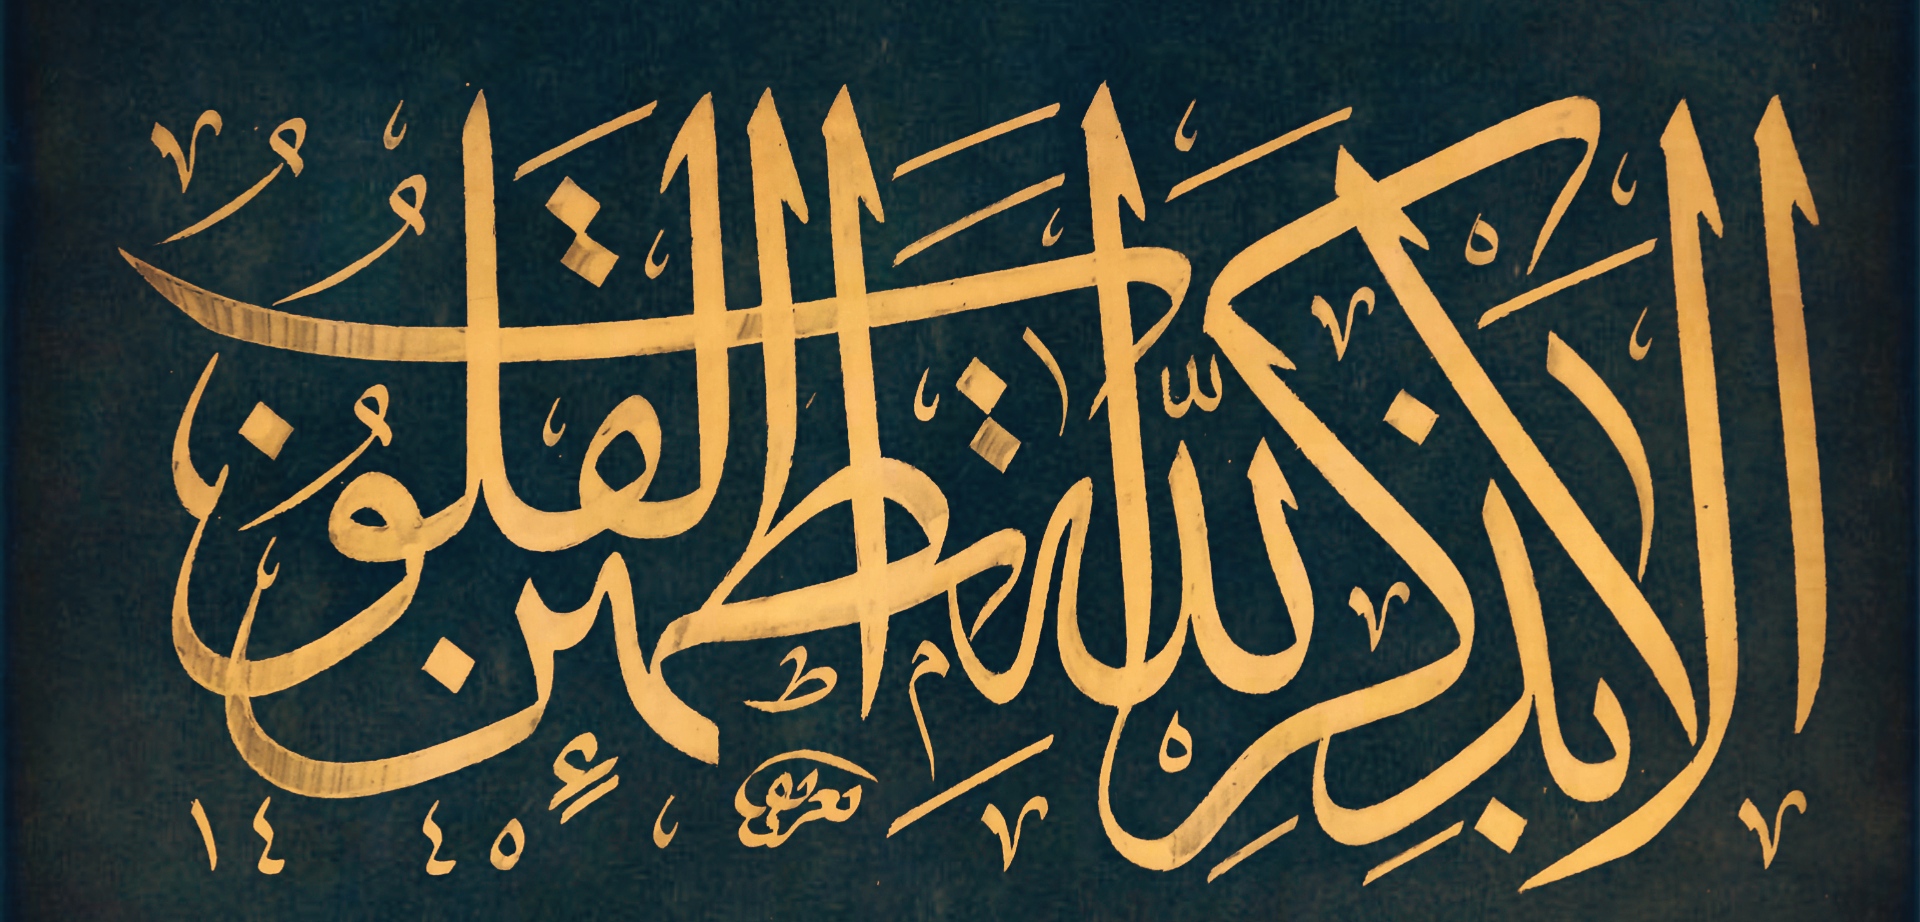 أَلَا بِذِكْرِ اللَّهِ تَطْمَئِنُّ الْقُلُوبُ
١٤٤٥